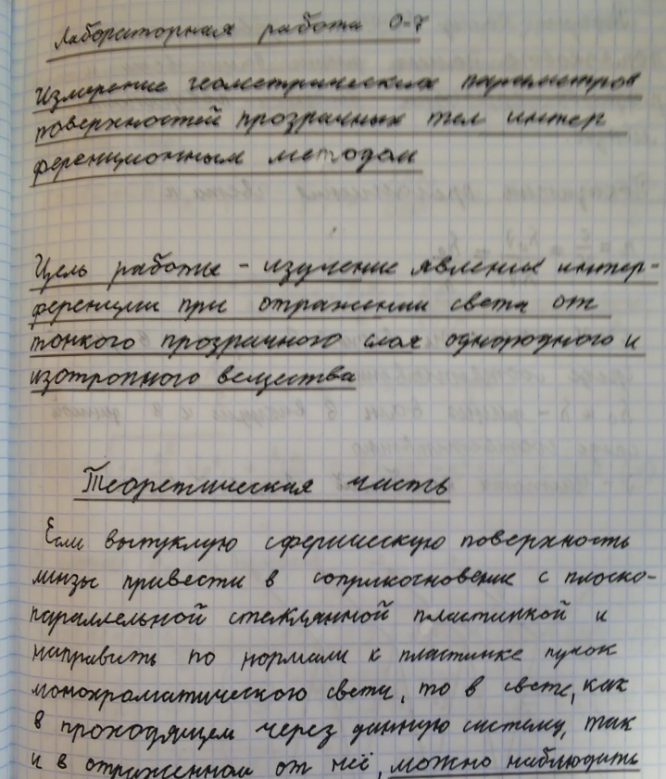 Лабораторная работа О-7
Измерение геометрических параметров
поверхностей прозрачных тел интер
ференционным методом
Цель работы - изучение явления интер-
ференции при отражении света от
тонкого прозрачного слоя однородного и
изотропного вещества
Теоретическая часть
Если выпуклую сферическую поверхность
линзы привести в соприкосновение с плоско-
параллельной стеклянной пластинкой и
направить по нормали к пластинке пучок
монохроматического света, то в свете, как
в проходящем через данную систему, так
и в отраженном от неё, можно наблюдать